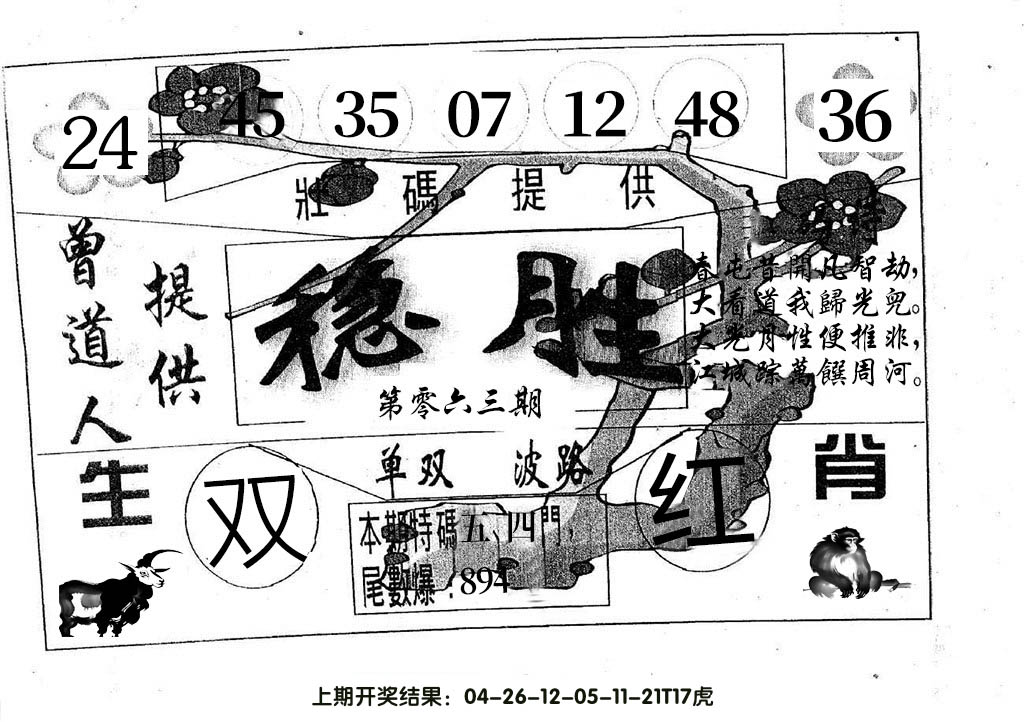 24 45 35 07 12 48 36
壯碼提供
曾道人
提供
稳胜
第零六三期
春屯昔開凡智劫，
大看道我歸光兜。
大光月性便推非，
江城踪萬饌周河。
单双 波路
生 双 红 肖
本期特碼五、四門，
尾數爆：894
上期开奖结果：04-26-12-05-11-21T17虎